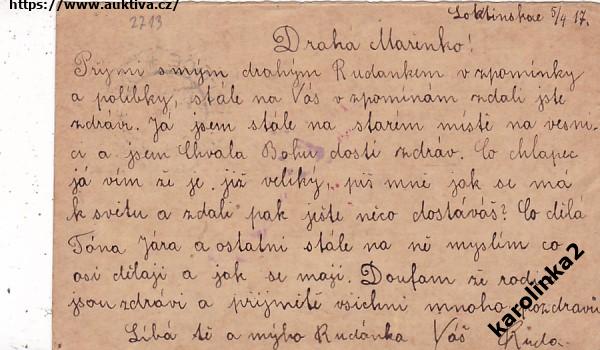 https://www.auktiva.cz/
2713
Loktinskae 5/4 17.
Drahá Mařenko!
Přijmi s mým drahým Rudánkem vzpomínky
a polibky, stále na Vás vzpomínám zdali jste
zdrávi. Já jsem stále na starém místě na vesni-
ci a jsem Chvala Bohu dosti zdráv. Co chlapec
já vím že je již veliký, piš mně jak se má
k světu a zdali pak ještě něco dostáváš? Co dělá
Tóna Jára a ostatní stále na ně myslím co
asi dělají a jak se mají. Doufam že
jsou zdrávi a přijměte všichni mnoho pozdravů
Líbá tě a mýho Rudánka Váš Ruda.
karolinka2